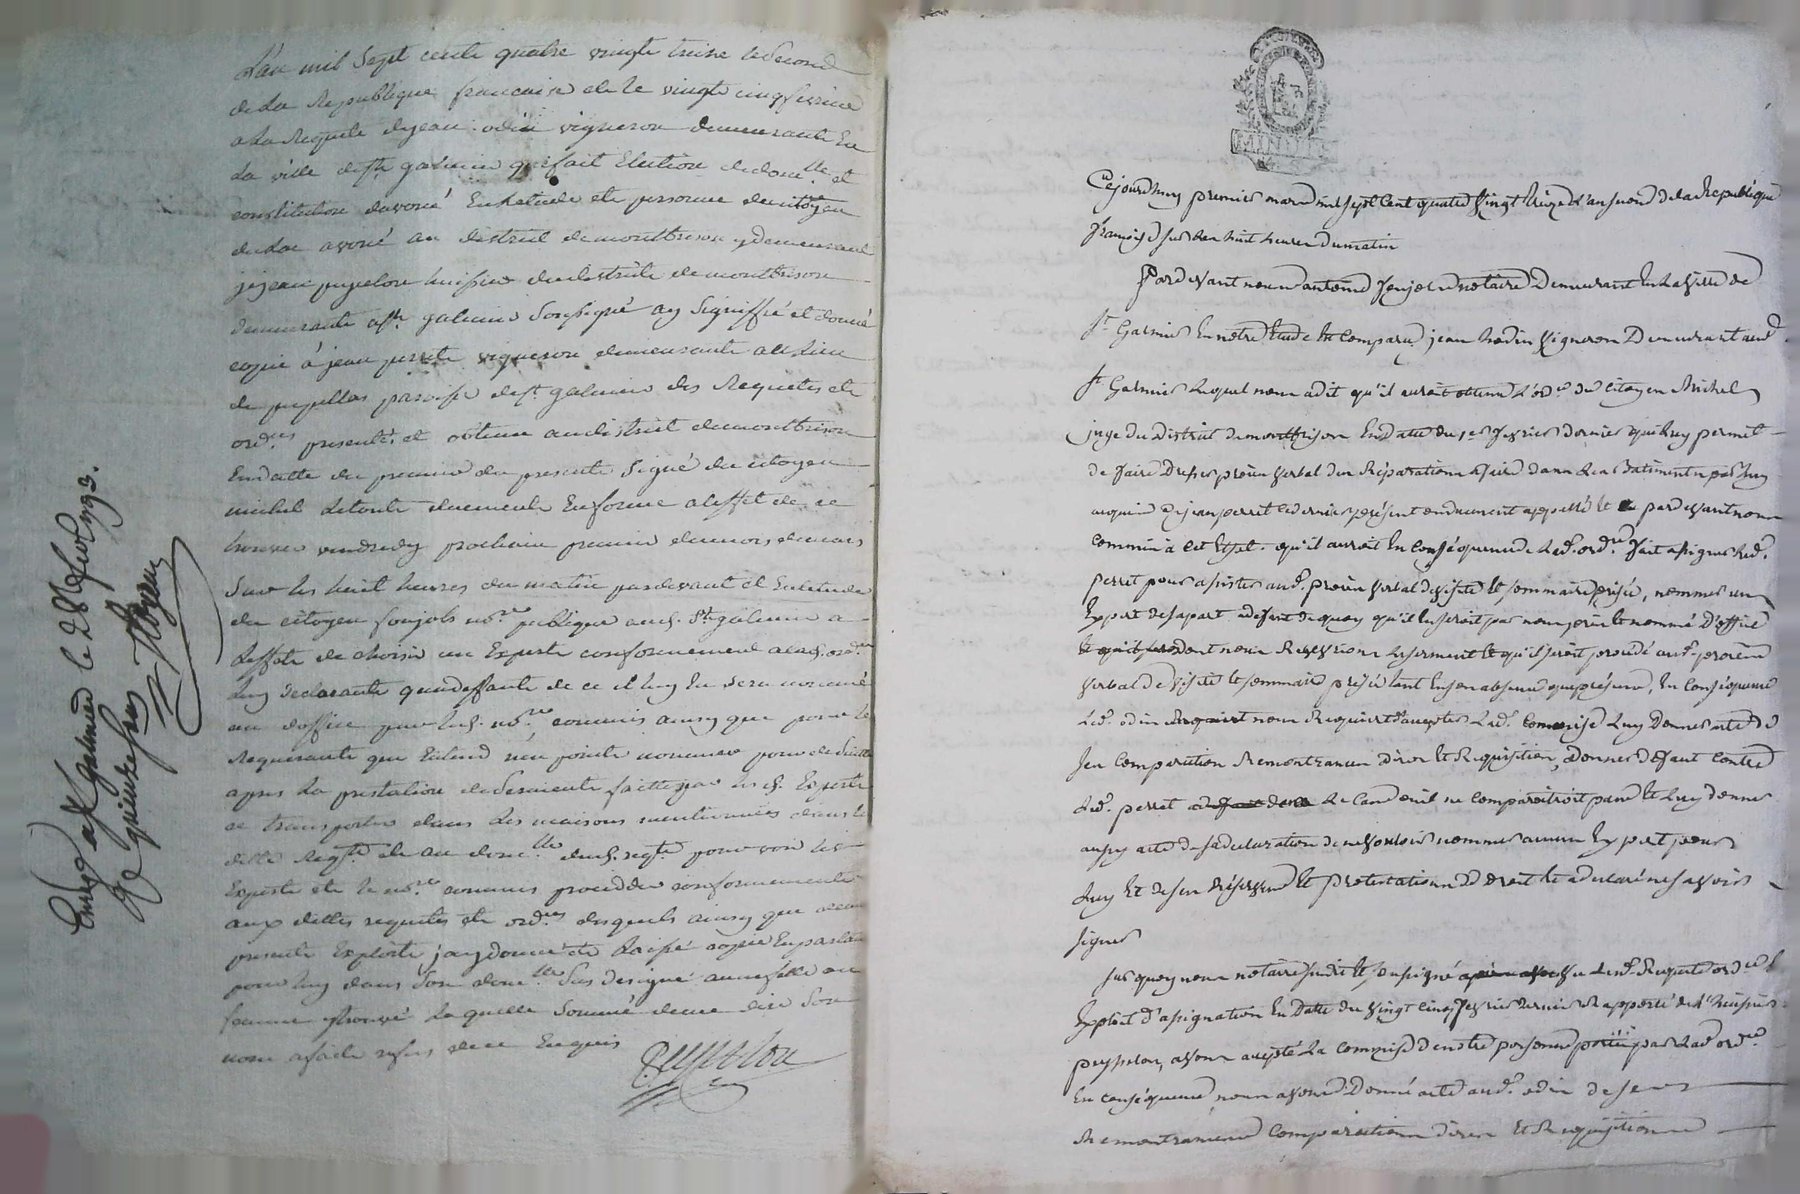 L'an mil sept cents quatre vingts treize le second
de la Republique francaise et le vingt cinq fevrier
a la Requete de jean odin vigneron demeurante En
La ville de st galmier qui fait Election de domlle et
constitution davoué En Letude et personne du citoyen
avoué au district de montbrison y demeurant
je jean pupelon huissier du district de montbrison
demeurante a st galmier Soussigné ay signiffié et donné
copie à jean perret vigneron demeurante au Lieu
de paroisse de st galmier des Requetes et
ordces presenté et obtenu au district de montbrison
En datte du premier du presente Signé du citoyen
michel Le toute duemente En forme a leffet de se
trouver vendredy prochain premier du mois de mars
Sur les huit heures du matin par devante et En Letude
du citoyen fonjols nore publique aud. St galmier a
Leffete de choisir un Experte conformement aud. ordce
Luy declarante qua deffaute de ce il luy En sera nommé
un doffice par led. nore commis ainsy que pour le
Requerante qui Entend n'en pointe nommer pour de suitte
apres La prestation de Sermente faitte par les d. Experts
se transporter dans Les maisons mentionnées dans la
ditte Reqte et au domlle dud. reqt pour voir les
Experts et le nore commis proceder conformemente
aux dittes requetes et ordces desquels ainsy que du
presente Exploite jay donné et laissé copie En parlant
pour luy dans Son domlle Sus designé a une fille ou
femme trouvé Laquelle Sommé de me dire Son
nom a faite refus de ce Enquis
Pupelon
Enreg. a St galmier le 28 fevr 1793.
Re quinze sols
MINUTE
Cejourdhuy premier mars mil sept Cent quatre Vingt treize L'an second de la Republique
francoise sur les huit heures du matin
Pardevant nous antoine fonjols notaire Demeurant En La Ville de
St Galmier En notre Etude Est Comparu jean hodin Vigneron Demeurant aud.
St Galmier Lequel nous a dit qu'il auroit obtenu L'ordce du Citoyen Michel
juge du District de montbrison En Datte du 1er fevrier dernier qui Luy permet
de faire Dresser procès Verbal des Réparations a faire dans Les Batiments par Luy
acquis de jean perret Ce dernier présent ou duement appellé Et pardevant nous
Commis à Cet Effet. qu'il auroit En Conséquence de Lad. ordce fait assigner Led.
perret pour assister aud. procès Verbal de Visite Et sommaire prisée, nommer un
Expert de sa part a defaut de quoy qu'il En seroit par nous pris Et nommé D'office
dont nous Recevrions Le serment Et qu'il seroit procedé aud. procès
Verbal de Visite Et sommaire prisée tant En son absence que présence, En Conséquence
Led. odin nous Requiert d'accepter Lad. Commise Luy Donner acte de
ses Comparution Remontrances dires Et Requisition, Donner Defaut Contre
Led. perret de Ce ne Comparoitroit pas Et Luy donner
aussy acte de sa déclaration de ne Vouloir nommer aucun Expert pour
Luy Et de ses Réserves Et protestations de droit Et a déclaré ne savoir
signer
sur quoy nous notaire susdit Et soussigné Vu Lesd. Requete ordce Et
Exploit d'assignation En Datte du Vingt Cinq fevrier dernier Rapporté de L'huissier
pupelon, avons accepté La Commise de notre personne portée par Lad. ordce
En Conséquence nous avons Donné acte aud. odin de ses
Remontrances Comparoitions dires Et Requisitions